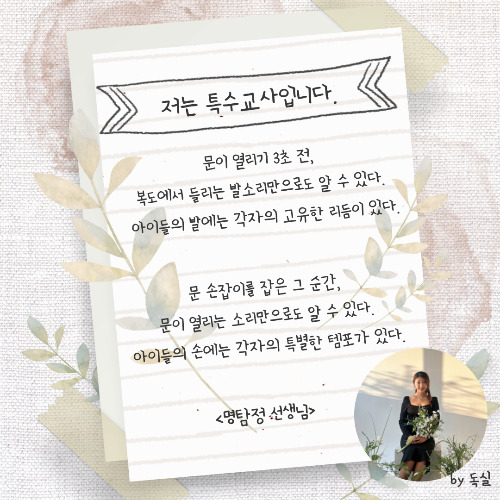 저는 특수교사입니다.
문이 열리기 3초 전,
복도에서 들리는 발소리만으로도 알 수 있다.
아이들의 발에는 각자의 고유한 리듬이 있다.
문 손잡이를 잡은 그 순간,
문이 열리는 소리만으로도 알 수 있다.
아이들의 손에는 각자의 특별한 템포가 있다.
<명탐정 선생님>
by 독실